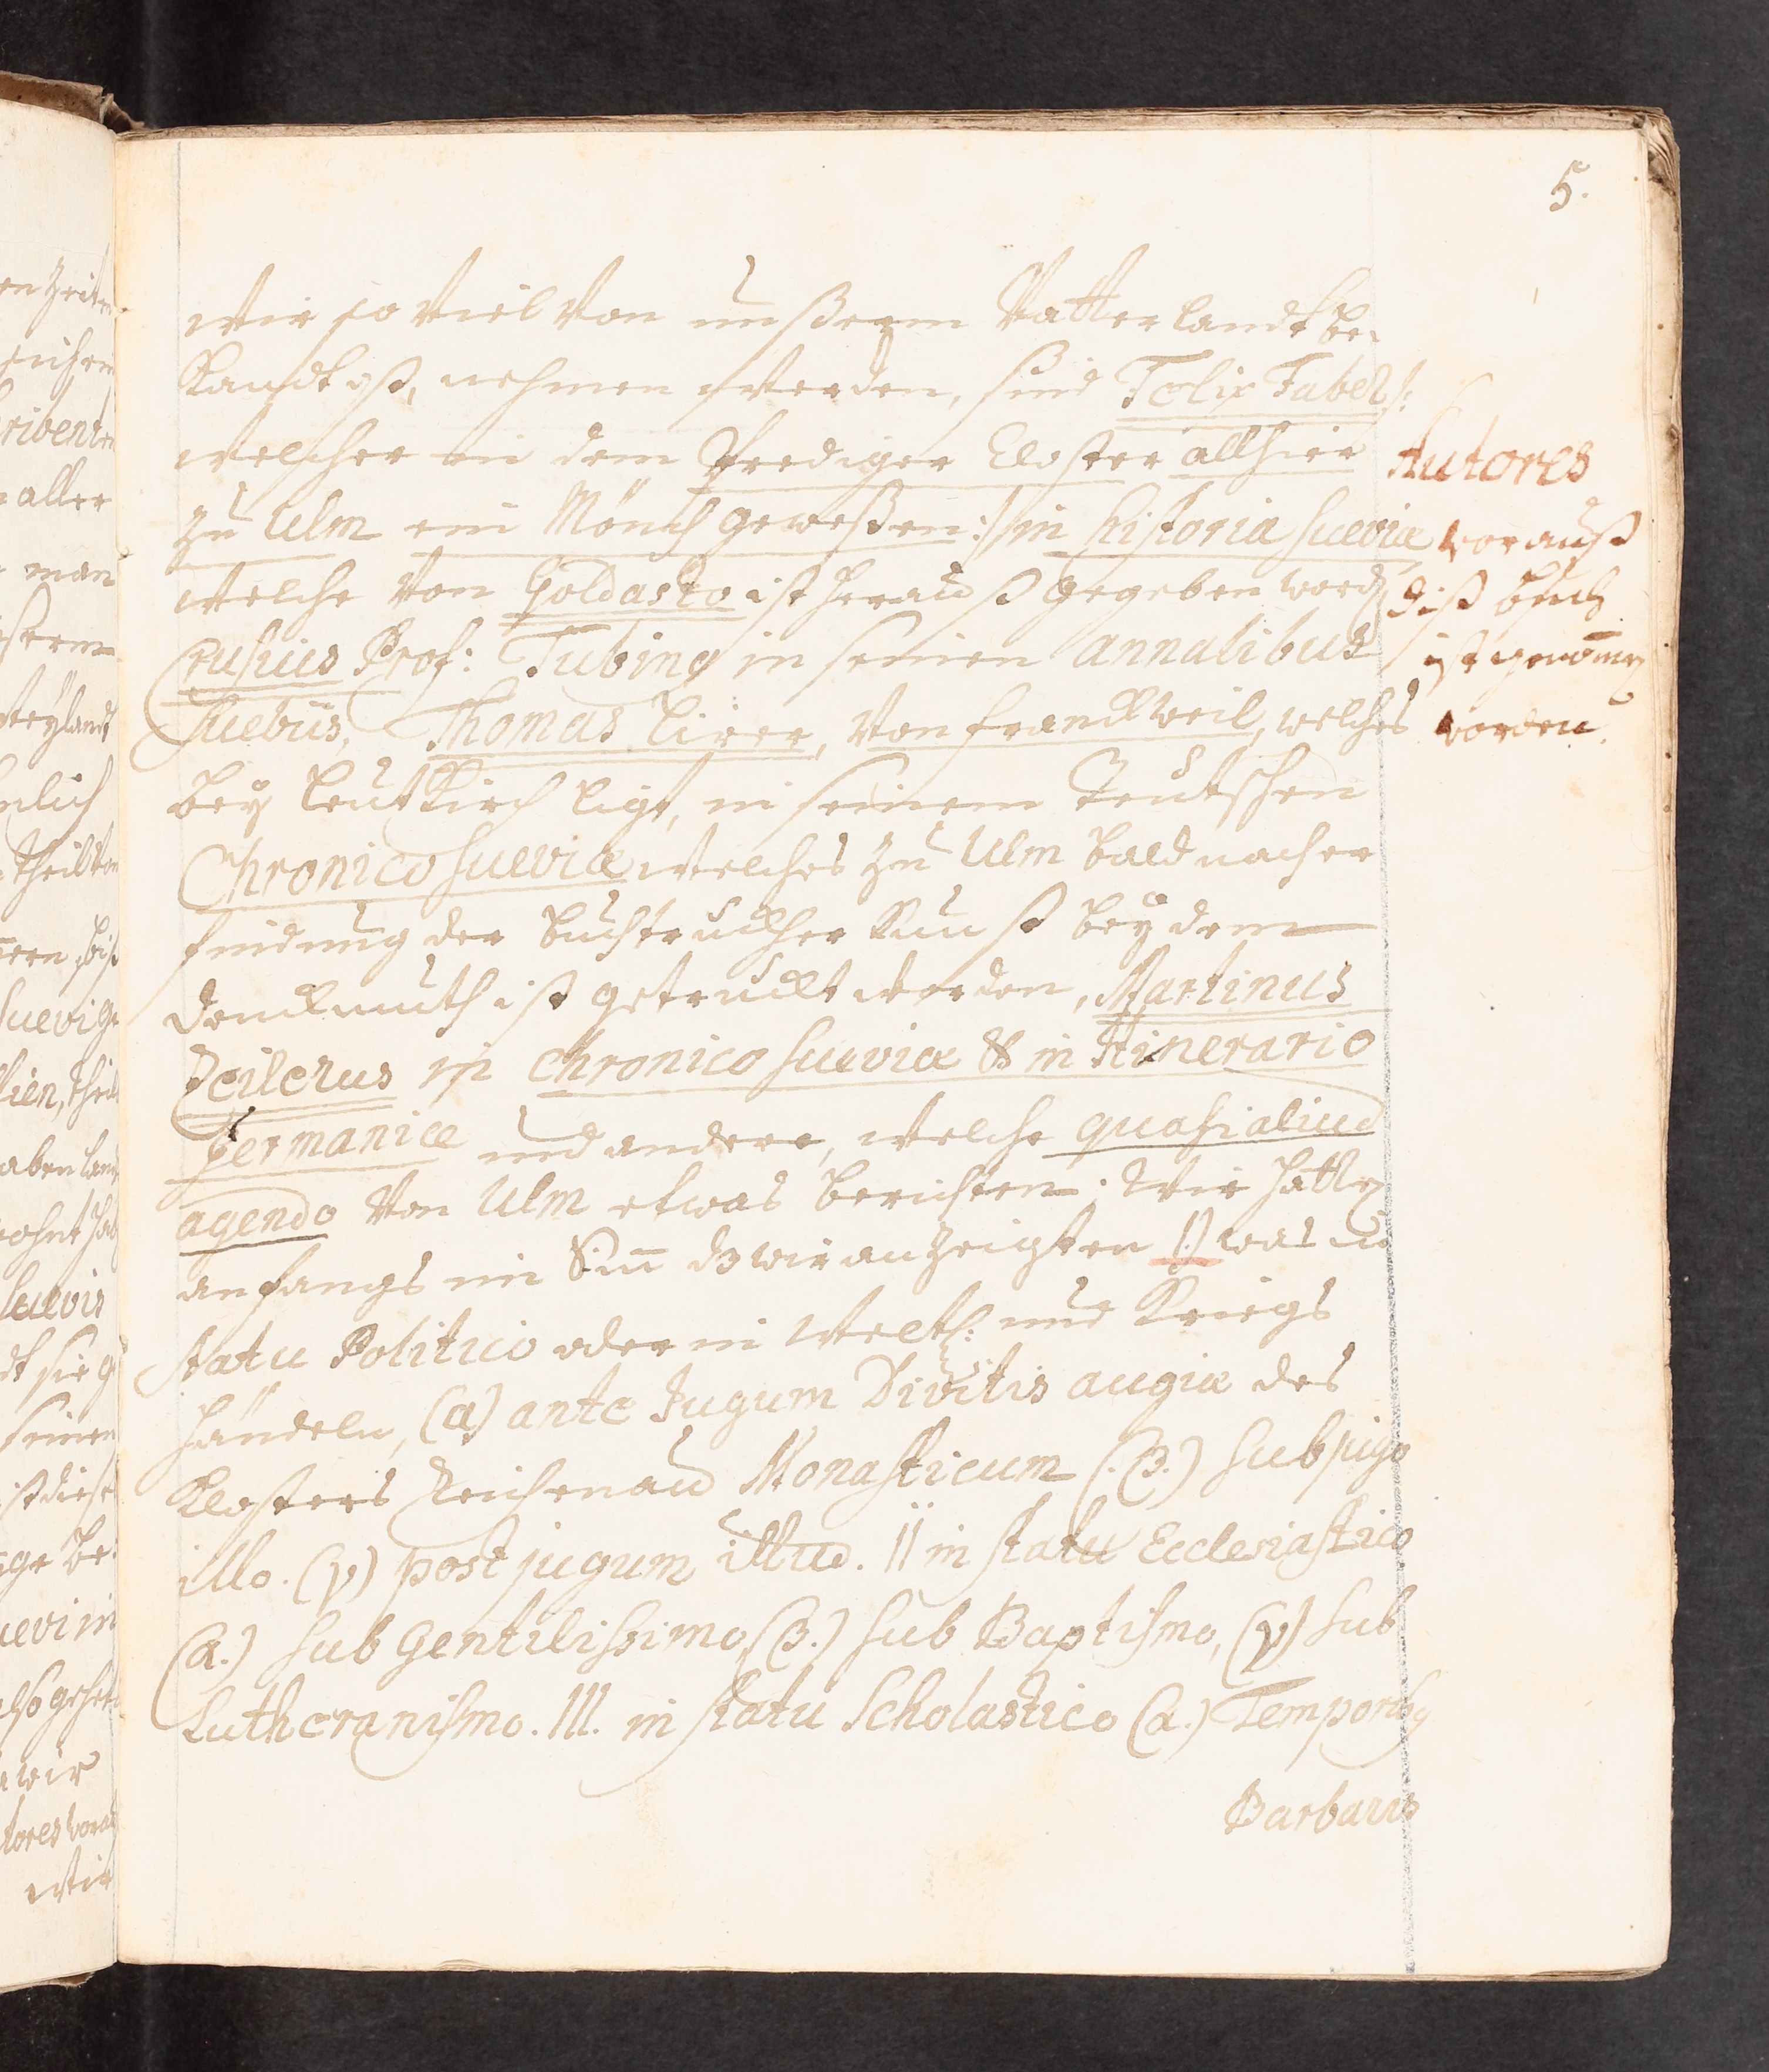 5.
wir so viel von unßerm Vatterlandt be-
kandt ist, nehmen werden, sind Felix Faber /:
welcher in dem Prediger Closter allhier
zu Ulm ein Mönch geweßen :/ in historia Sueviæ
welche von Goldasto ist herauß gegeben word
Crusius Prof: Tubing in seinen annalibus
Suebiis, Thomas Lirer, von franckweil, welches
bey Leutkirch ligt, in seinem Teutschen
Chronico Sueviæ welches zu Ulm bald nach er
findung der buchtruckher Kunst bey dem
Denckmuth ist getruckt worden, Martinus
Zeilerus in chronico Sueviæ & in Itinerario
Germaniæ und andere, welche quasi aliud
agendo von Ulm etwas berichten. Wir hatten
anfangs im Sinn dz wir anzeigten I.) was in
statu Politico oder in Weltl: und Kriegs
händeln, (a) ante Jugum Divitis augiæ des
Klosters Reichenau Monasticum (.B.) sub jugo
illo. (γ) post jugum illud. II in statu Ecclesiastico
(a.) sub Gentilissimo, (B.) sub Baptismo, (γ) sub
Lutheranismo. III. in statu Scholastico (a.) Temporibg
Barbaris
Autores
worauß
diß buch
ist genom̄en
worden.